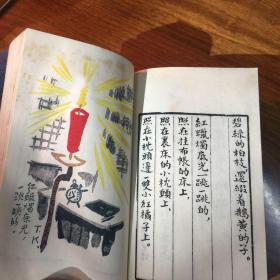 碧綠的柏枝，還綴着鵝黃的子。
紅蠟燭底光一跳一跳的，
照在挂布帳的床上，
照在裏床的小枕頭上，
照在小枕頭邊一雙小紅橘子上。
紅蠟燭底光
一跳一跳的
T.K.